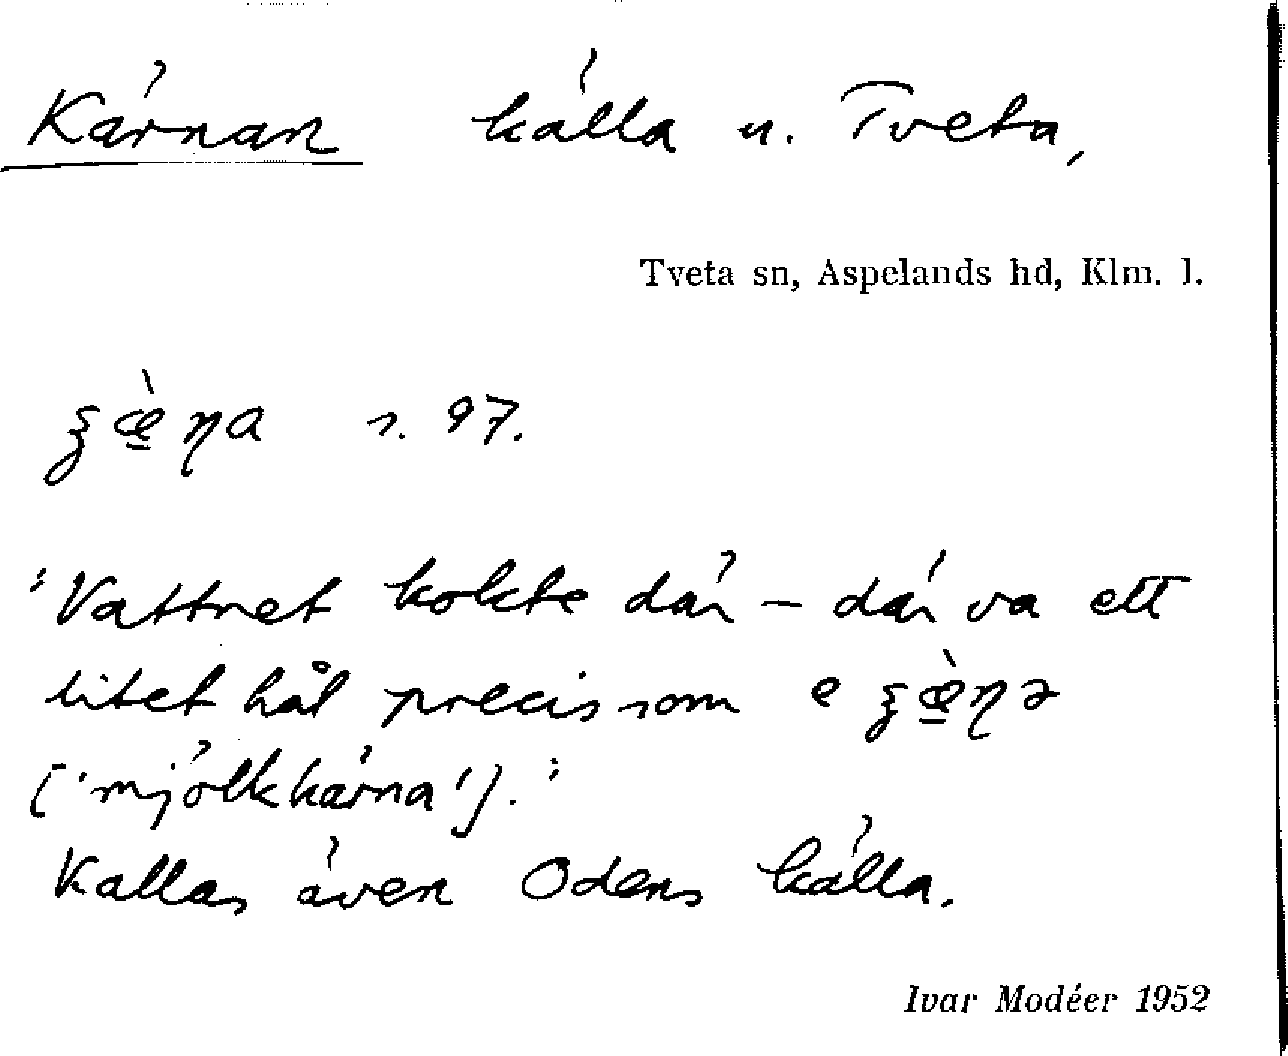 Kärnan källa u. Tveta,
Tveta sn, Aspelands hd, Klm. l.
s. 97.
"Vattnet kokte där – där va ett
litet hål precis som e
['mjölkkärna']."
Kallas även Odens källa.
Ivar Modéer 1952